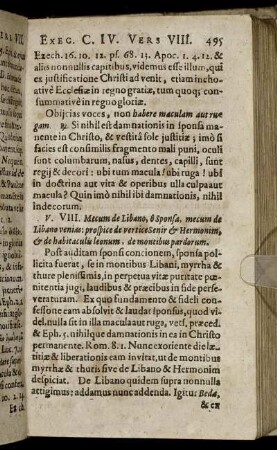 EXEG. C. IV. VERS VIII. 495
Ezech. 16. 10. 12. ps. 68. 13. Apoc. 1. 4. 12. &
aliis nonnullis capitibus, videmus esse illum, qui
ex justificatione Christi ad venit, etiam inchoati-
væ Ecclesiæ in regno gratiæ, tum quoq; con-
summativæ in regno gloriæ.
Objicias voces, non habere maculam aut ru-
gam. ꝶ. Si nihil est damnationis in sponsa ma-
nente in Christo, & vestita sole justitiæ; imò si
facies est consimilis fragmento mali punici, oculi
sunt columbarum, nasus, dentes, capilli, sunt
regij & decori: ubi tum macula? ubi ruga? ubi
in doctrina aut vita & operibus ulla culpa aut
macula? Quin imò nihil ibi damnationis, nihil
indecorum.
V. VIII. Mecum de Libano, ô Sponsa, mecum de
Libano venias: prospice de vertice Senir & Hermonim,
& de habitaculu leonum, de montibus pardorum.
Post auditam sponsi concionem, sponsa pol-
licita fuerat, se in montibus Libani, myrrhæ &
thure plenissimis, in perpetua vitæ puritate pœni-
tentia jugi, laudibus & præcibus in fide perse-
veraturam. Ex quo fundamento & fideli con-
fessione eam absolvit & laudat sponsus, quod vi-
del. nulla sit in illa macula aut ruga, vers. præced.
& Eph. 5. nihilque damnationis in ea in Christo
permanente. Rom. 8. 1. Nunc ex oriente die læ-
titiæ & liberationis eam invitat, ut de montibus
myrrhæ & thuris sive de Libano & Hermonim
despiciat. De Libano quidem supra nonnulla
attigimus; addamus nunc addenda. Igitur Beda,
& ex